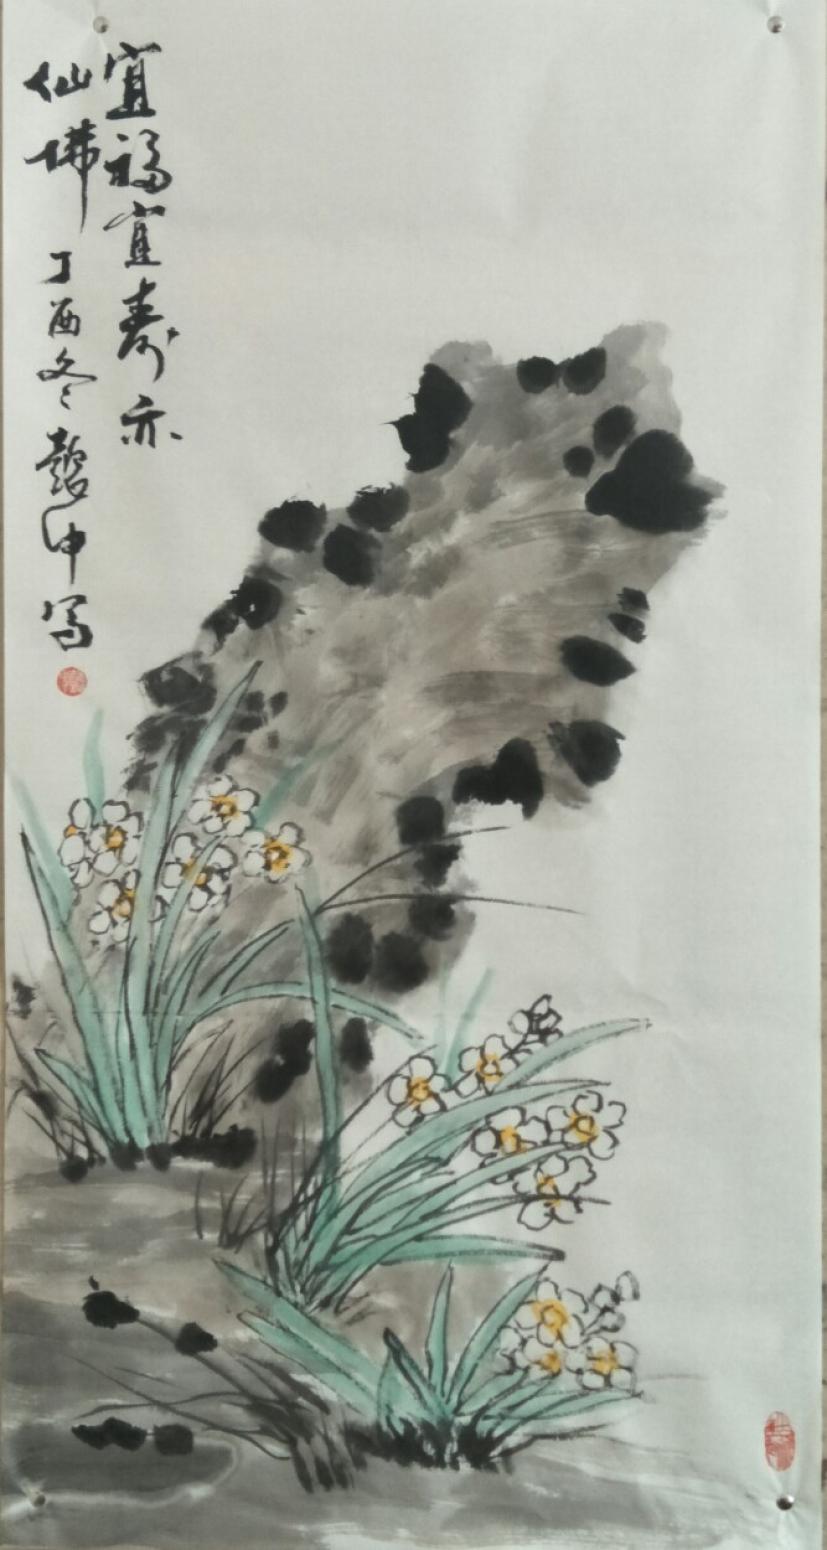 宜福宜寿亦
仙佛 丁酉冬 懿中写